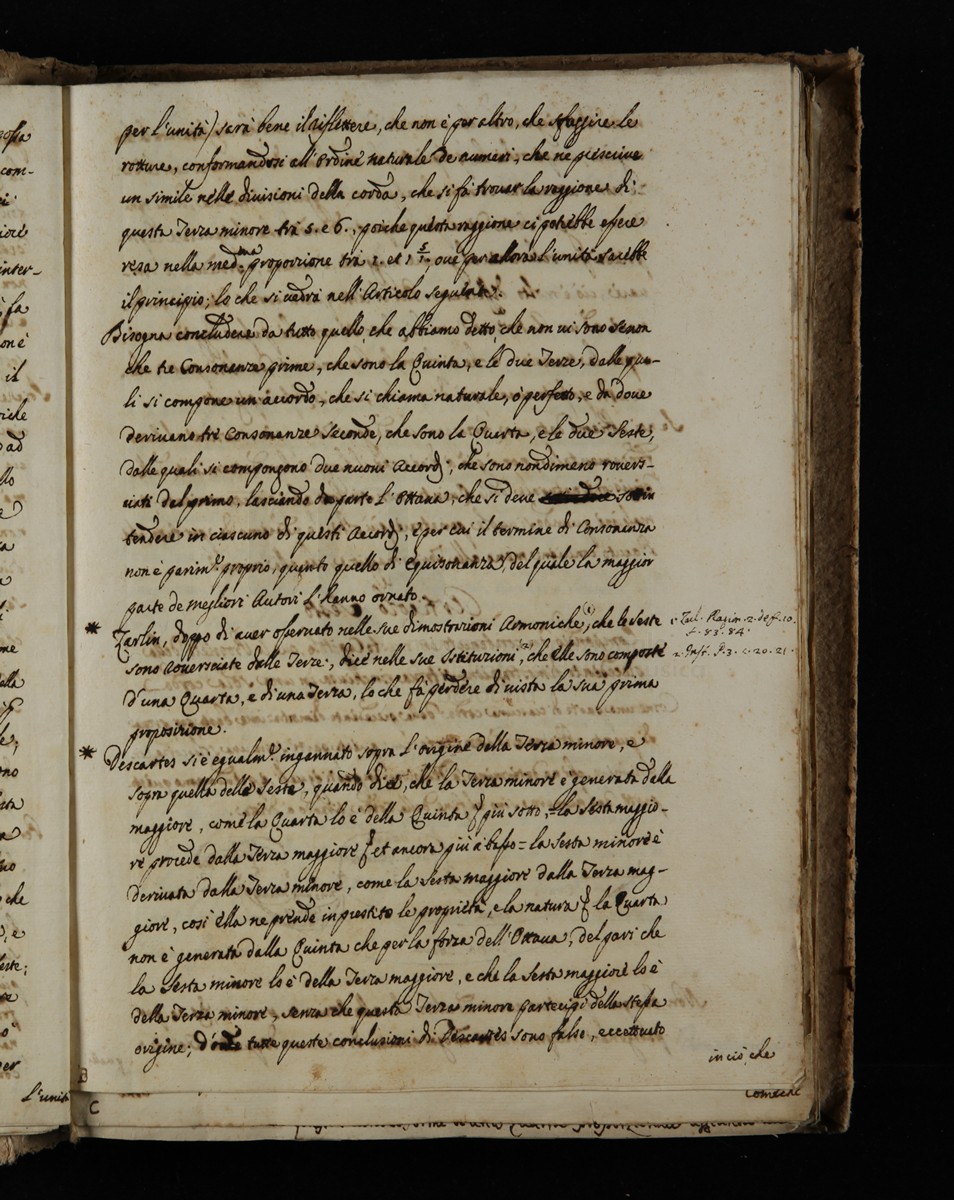 per l'unità) sarà bene il riflettere, che non è per altro, che sfuggire le
rotture, conformandosi all'Ordine naturale de numeri, che ne prescrive
un simile nelle divisioni della corda, che si fà trovar la raggione di
questa Terza minore trà 5. e 6., poiche questa raggione ci potrebbe essere
resa nella med.ma proporzione trà 1. et 1 5/1, ove per allora l'unità sarebbe
il principio; lo che si vedrà nell'Articolo seguente.
Bisogna concludere da tutto quello, che abbiamo detto, che non vi sono senon
che tre Consonanze prime, che sono la Quinta, e le due Terze, dalle qua-
li si compone un'accordo, che si chiama naturale, ò perfetto, e da dove
derivano tre Consonanze seconde, che sono la Quarta, e le due Seste,
dalle quali si compongono due nuovi Accordj, che sono nondimeno rovers-
ciati dal primo, lasciendo da parte l'Ottava, che si deve sottin
tendere in ciascuno di questi Accordj, e per cui il termine di Consonanza
non è parim.te proprio, quanto quello di Equisonanza, del quale la maggior
parte de megliori Autori l'hanno ornato.
* Zarlin, doppo di aver osservato nelle sue dimostrazioni Armoniche (1), che le Seste
1. Zal. Ragin. 2. def. 10.
f. 83. 84.
sono roversciate dalle Terze, dice nelle sue Istituzioni (2), che elle sono composte
2. Inst. P. 3. c. 20. 21.
d'una Quarta, e di una Terza, lo che fà perdere di vista la sua prima
proposizione.
* Descartes si è egualm.te ingannato sopra l'origine della Terza minore, e
sopra quella delle Seste, quando dice, che la Terza minore è generata dalla
maggiore, come la Quarta lo è della Quinta più sotto, = la Sesta maggio-
re procede dalla Terza maggiore et ancora più a basso = la Sesta minore è
derivata dalla Terza minore, come la Sesta maggiore dalla Terza mag-
giore, così ella ne prende in prestito le proprietà, e la natura la Quarta
non è generata dalla Quinta che per la forza dell'Ottava, del pari che
la Sesta minore lo è della Terza maggiore, e che la Sesta maggiore lo è
della Terza minore, senza che questa Terza minore partecipi della stessa
origine; tutte queste conclusioni di Descartes sono false, eccettuato
in ciò, che
l'unità
B
C
comeche